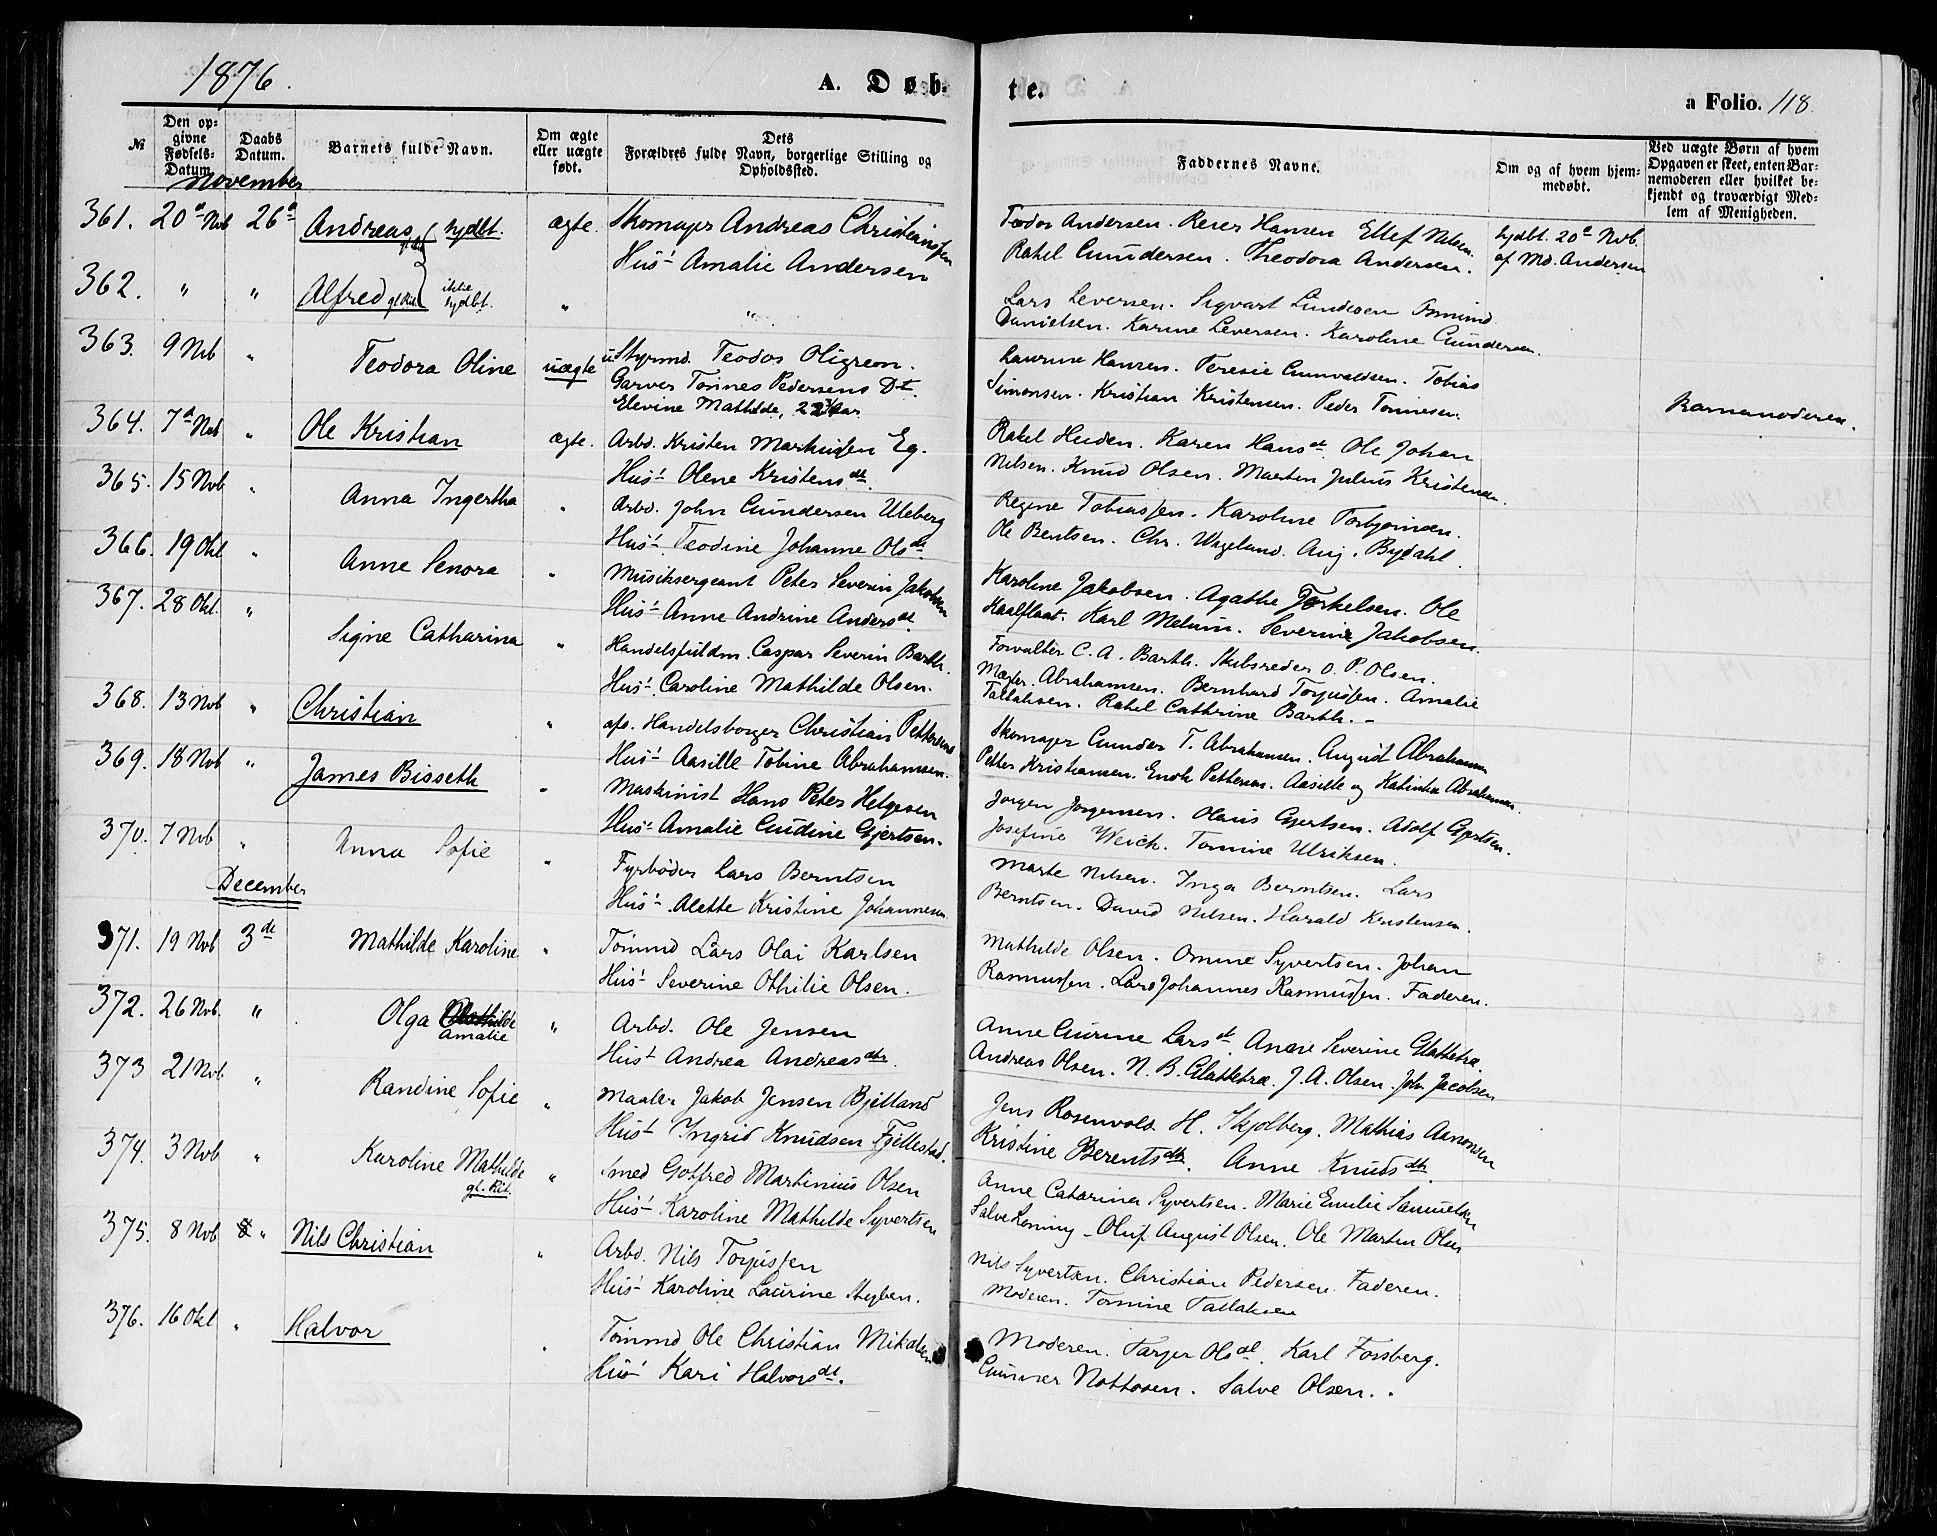 1876.
A. Døb-
te.
a Folio. 118.
№
Den opgivne Fødsels-Datum.
Daabs Datum.
Barnets fulde Navn.
Om ægte eller uægte født.
Dets Forældres fulde Navn, borgerlige Stilling og Opholdssted.
Faddernes Navne.
Om og af hvem hjemmedøbt.
Ved uægte Børn af hvem Opgaven er skeet, enten Barnemoderen eller hvilket bekjendt og troværdigt Medlem af Menigheden.
November
361. 20de Nvb 26de Andreas hjdbt. ægte. Skomager Andreas Christiansen
Hus! Amalie Andersen
Teodor Andersen. Reier Hansen Ellef Nilsen.
Rakel Gundersen. Theodora Andersen.
hjdbt. 20de Nvb.
af Md. Andersen
362. " " Alfred ikke hjdbt. " "
Lars Leversen. Sigvart Gundersen
Danielsen. Karine Leversen. Karoline Gundersen.
363. 9 Nvb " Teodora Oline uægte Styrmd. Teodos
Garver Tönnes Pedersens Dt.
Elevine Mathilde, 22 Aar
Laurine Hansen. Teresie Gunvaldsen. Tobias
Simonsen. Kristian Kristensen. Peder Tönnesen.
Barnemoderen.
364. 7de Nvb " Ole Kristian ægte. Arbd. Kristen Markussen Eg.
Hus! Olene Kristensdt.
Rakel Heiden. Karen Hansdt. Ole Johan
Nilsen. Knud Olsen. Marten Julius Kristensen.
365. 15 Nvb " Anna Ingertha " Arbd. John Gundersen Uleberg
Hus! Teodine Johanne Olsdt.
Regine Tobiassen. Karoline Torbjörnsen.
Ole Bentsen. Chr. Wageland. Aug. Bydahl.
366. 19 Okt " Anne Senora " Musiksergeant Peter Severin Jakobsen
Hus! Anne Andrine Andersdt.
Karoline Jakobsen. Agathe Torkelsen. Ole
Kaalflaat. Karl Melum. Severine Jakobsen.
367. 28 Okt. " Signe Catharina " Handelsfuldm. Caspar Severin Barth
Hus! Caroline Mathilde Olsen.
Forvalter C. A. Barth. Skibsreder O. P. Olsen.
Mægler. Abrahamsen. Bernhard Torjussen. Amalie
Tallaksen. Rakel Cathrine Barth.
368. 13 Nvb " Christian " afs. Handelsborger Christian Pettersens
Hus! Aasille Tobine Abrahamsen.
Skomager Gunder T. Abrahamsen. August Abrahamsen
Petter Kristiansen. Enok Pettersen. Aasille og Katinka Abrahamsen.
369. 18 Nvb " James Bisseth " Maskinist Hans Peter Helgesen
Hus! Amalie Gudine Gjertsen.
Jörgen Jörgensen. Olaus Gjertsen. Adolf Gjertsen.
Josefine Weich. Tomine Ulriksen.
370. 7 Nvb " Anna Sofie " Fyrböder Lars Berntsen
Hus! Alette Kristine Johannesen.
Marte Nilsen. Inga Berntsen. Lars
Berntsen. David Nilsen. Harald Kristensen.
December
371. 19 Nvb 3de Mathilde Karoline " Tömmd Lars Olai Karlsen
Hus! Severine Othilie Olsen.
Mathilde Olsen. Omine Syvertsen. Johan
Rasmussen. Lars Johannes Rasmussen. Faderen.
372. 26 Nvb. " Olga Mathilde Amalie " Arbd. Ole Jensen
Hust Andrea Andreasdtr
Anne Gurine Larsdt. Anne Severine Glattetre.
Andreas Olsen. N. B. Glattetre. J. A. Olsen. Joh. Jacobsen
373 21 Nvb " Randine Sofie " Maaler Jakob Jensen Bjelland
Hust Ingrid Knudsen Fjellestad.
Jens Rosenvold. H. Skjolberg. Mathias Aanonsen
Kristine Berentsdtr. Anne Knudsdtr
374. 3 Nvb " Karoline Mathilde " Smed Gotfred Martinius Olsen
Hus! Karoline Mathilde Syvertsen
Anne Catarina Syvertsen. Marie Emilie Samuelsen
Salve Loning. Oluf August Olsen. Ole Marten Olsen
375. 8 Nvb " Nils Christian " Arbd. Nils Torjussen
Hus! Karoline Laurine Styben.
Nils Syvertsen. Christian Pedersen. Faderen.
Moderen. Tomine Tallaksen
376. 16 Okt " Halvor " Tömmd Ole Christian Mikalsen
Hus! Kari Halvorsdt.
Moderen. Tarjer Olsdt. Karl Forsberg.
Gunner Nottosen. Salve Olsen.